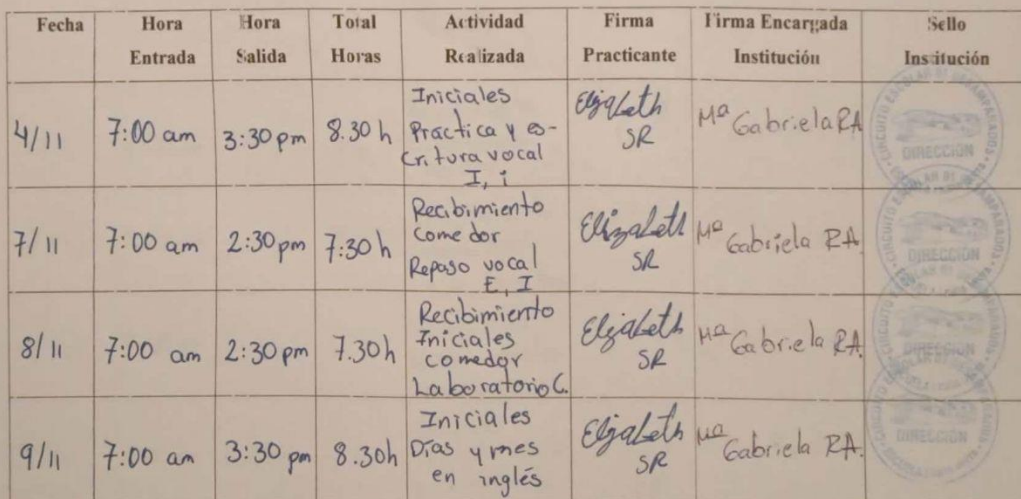 Fecha Hora Entrada Hora Salida Total Horas Actividad Realizada Firma Practicante Firma Encargada Institución Sello Institución
4/11 7:00 am 3:30 pm 8.30 h Iniciales
Practica y es-
critura vocal
I, i
Elizabeth
SR
Mª Gabriela RA
DIRECCIÓN
7/11 7:00 am 2:30 pm 7:30 h Recibimiento
Comedor
Repaso vocal
E, I
Elizabeth
SR
Mª Gabriela RA
DIRECCIÓN
8/11 7:00 am 2:30 pm 7.30 h Recibimiento
Iniciales
comedor
Laboratorio C.
Elizabeth
SR
Mª Gabriela RA.
9/11 7:00 am 3:30 pm 8.30h Iniciales
Días y mes
en inglés
Elizabeth
SR
Mª Gabriela RA.
DIRECCIÓN